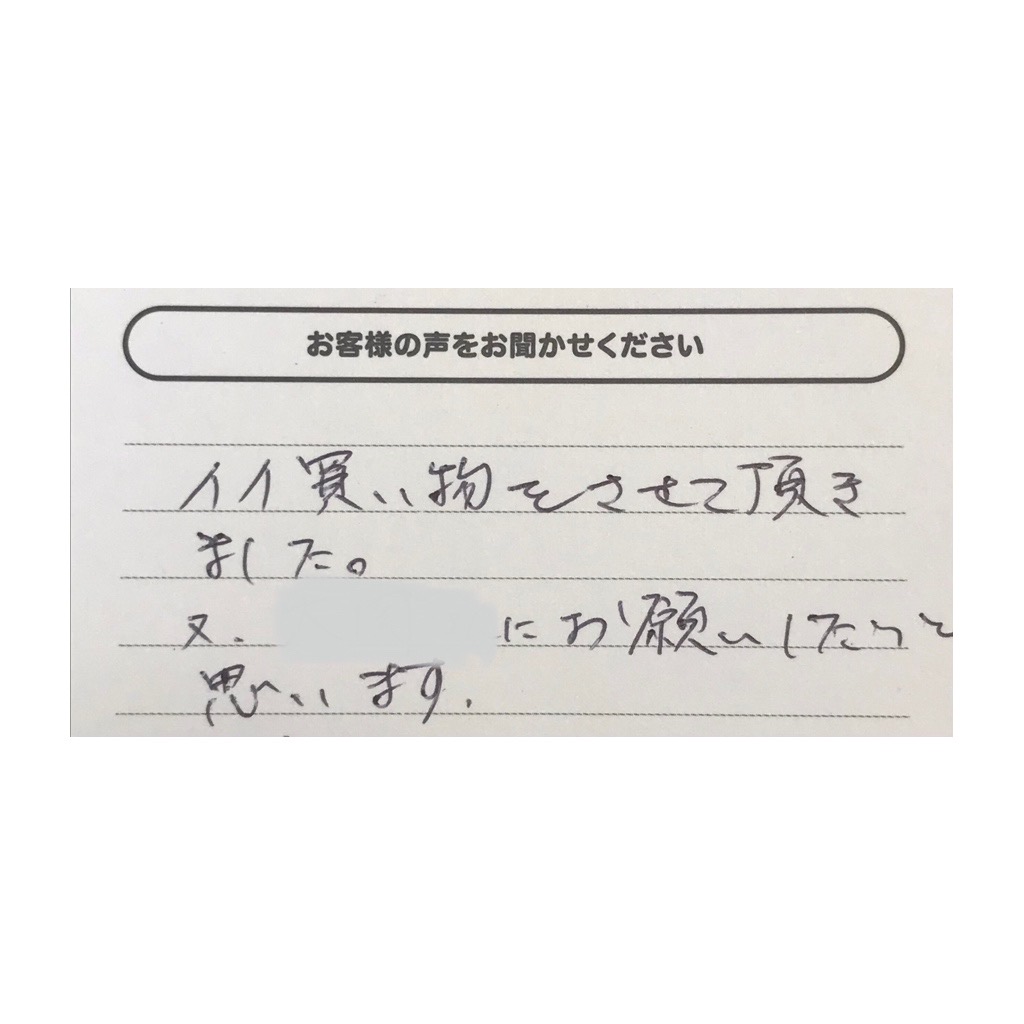 お客様の声をお聞かせください
イイ買い物をさせて頂き
ました。
又、にお願いしたいと
思います。